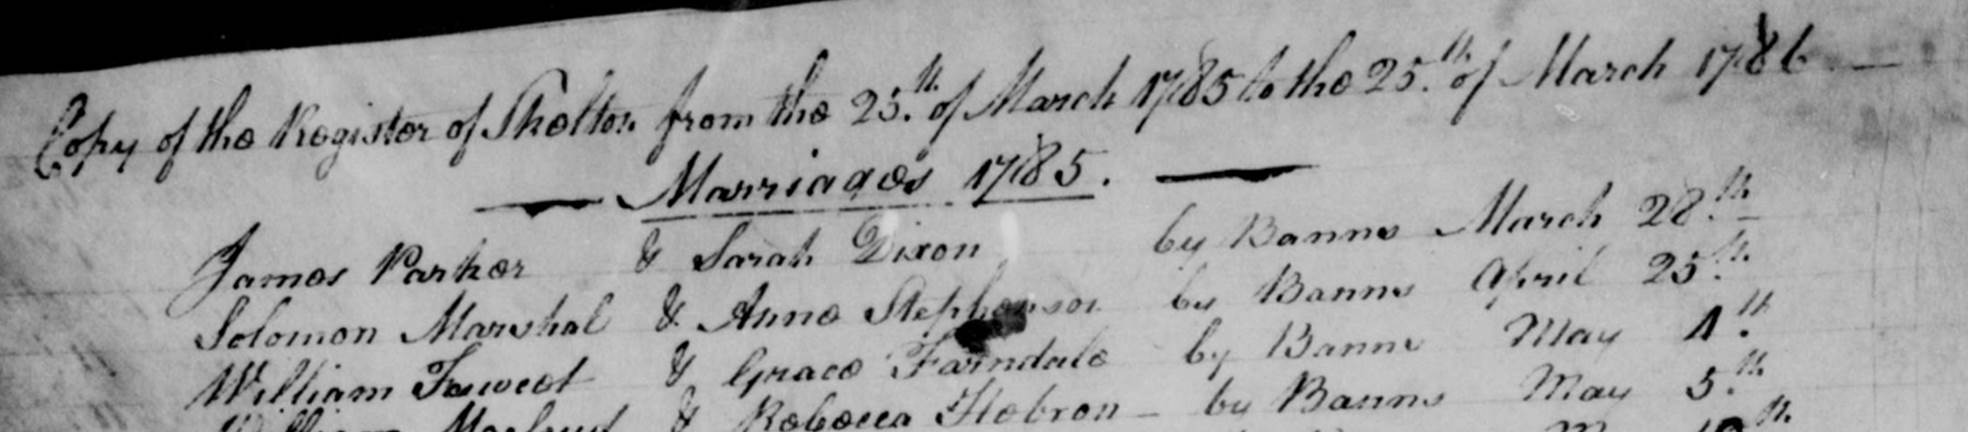 Copy of the Register of Skelton from the 25.th of March 1785 to the 25.th of March 1786
Marriages 1785.
James Parker & Sarah Dixon by Banns March 28.th
Solomon Marshal & Anne Stephenson by Banns April 25.th
William Fawcet & Grace Farndale by Banns May 1.th
William & Rebecca Hebron by Banns May 5.th